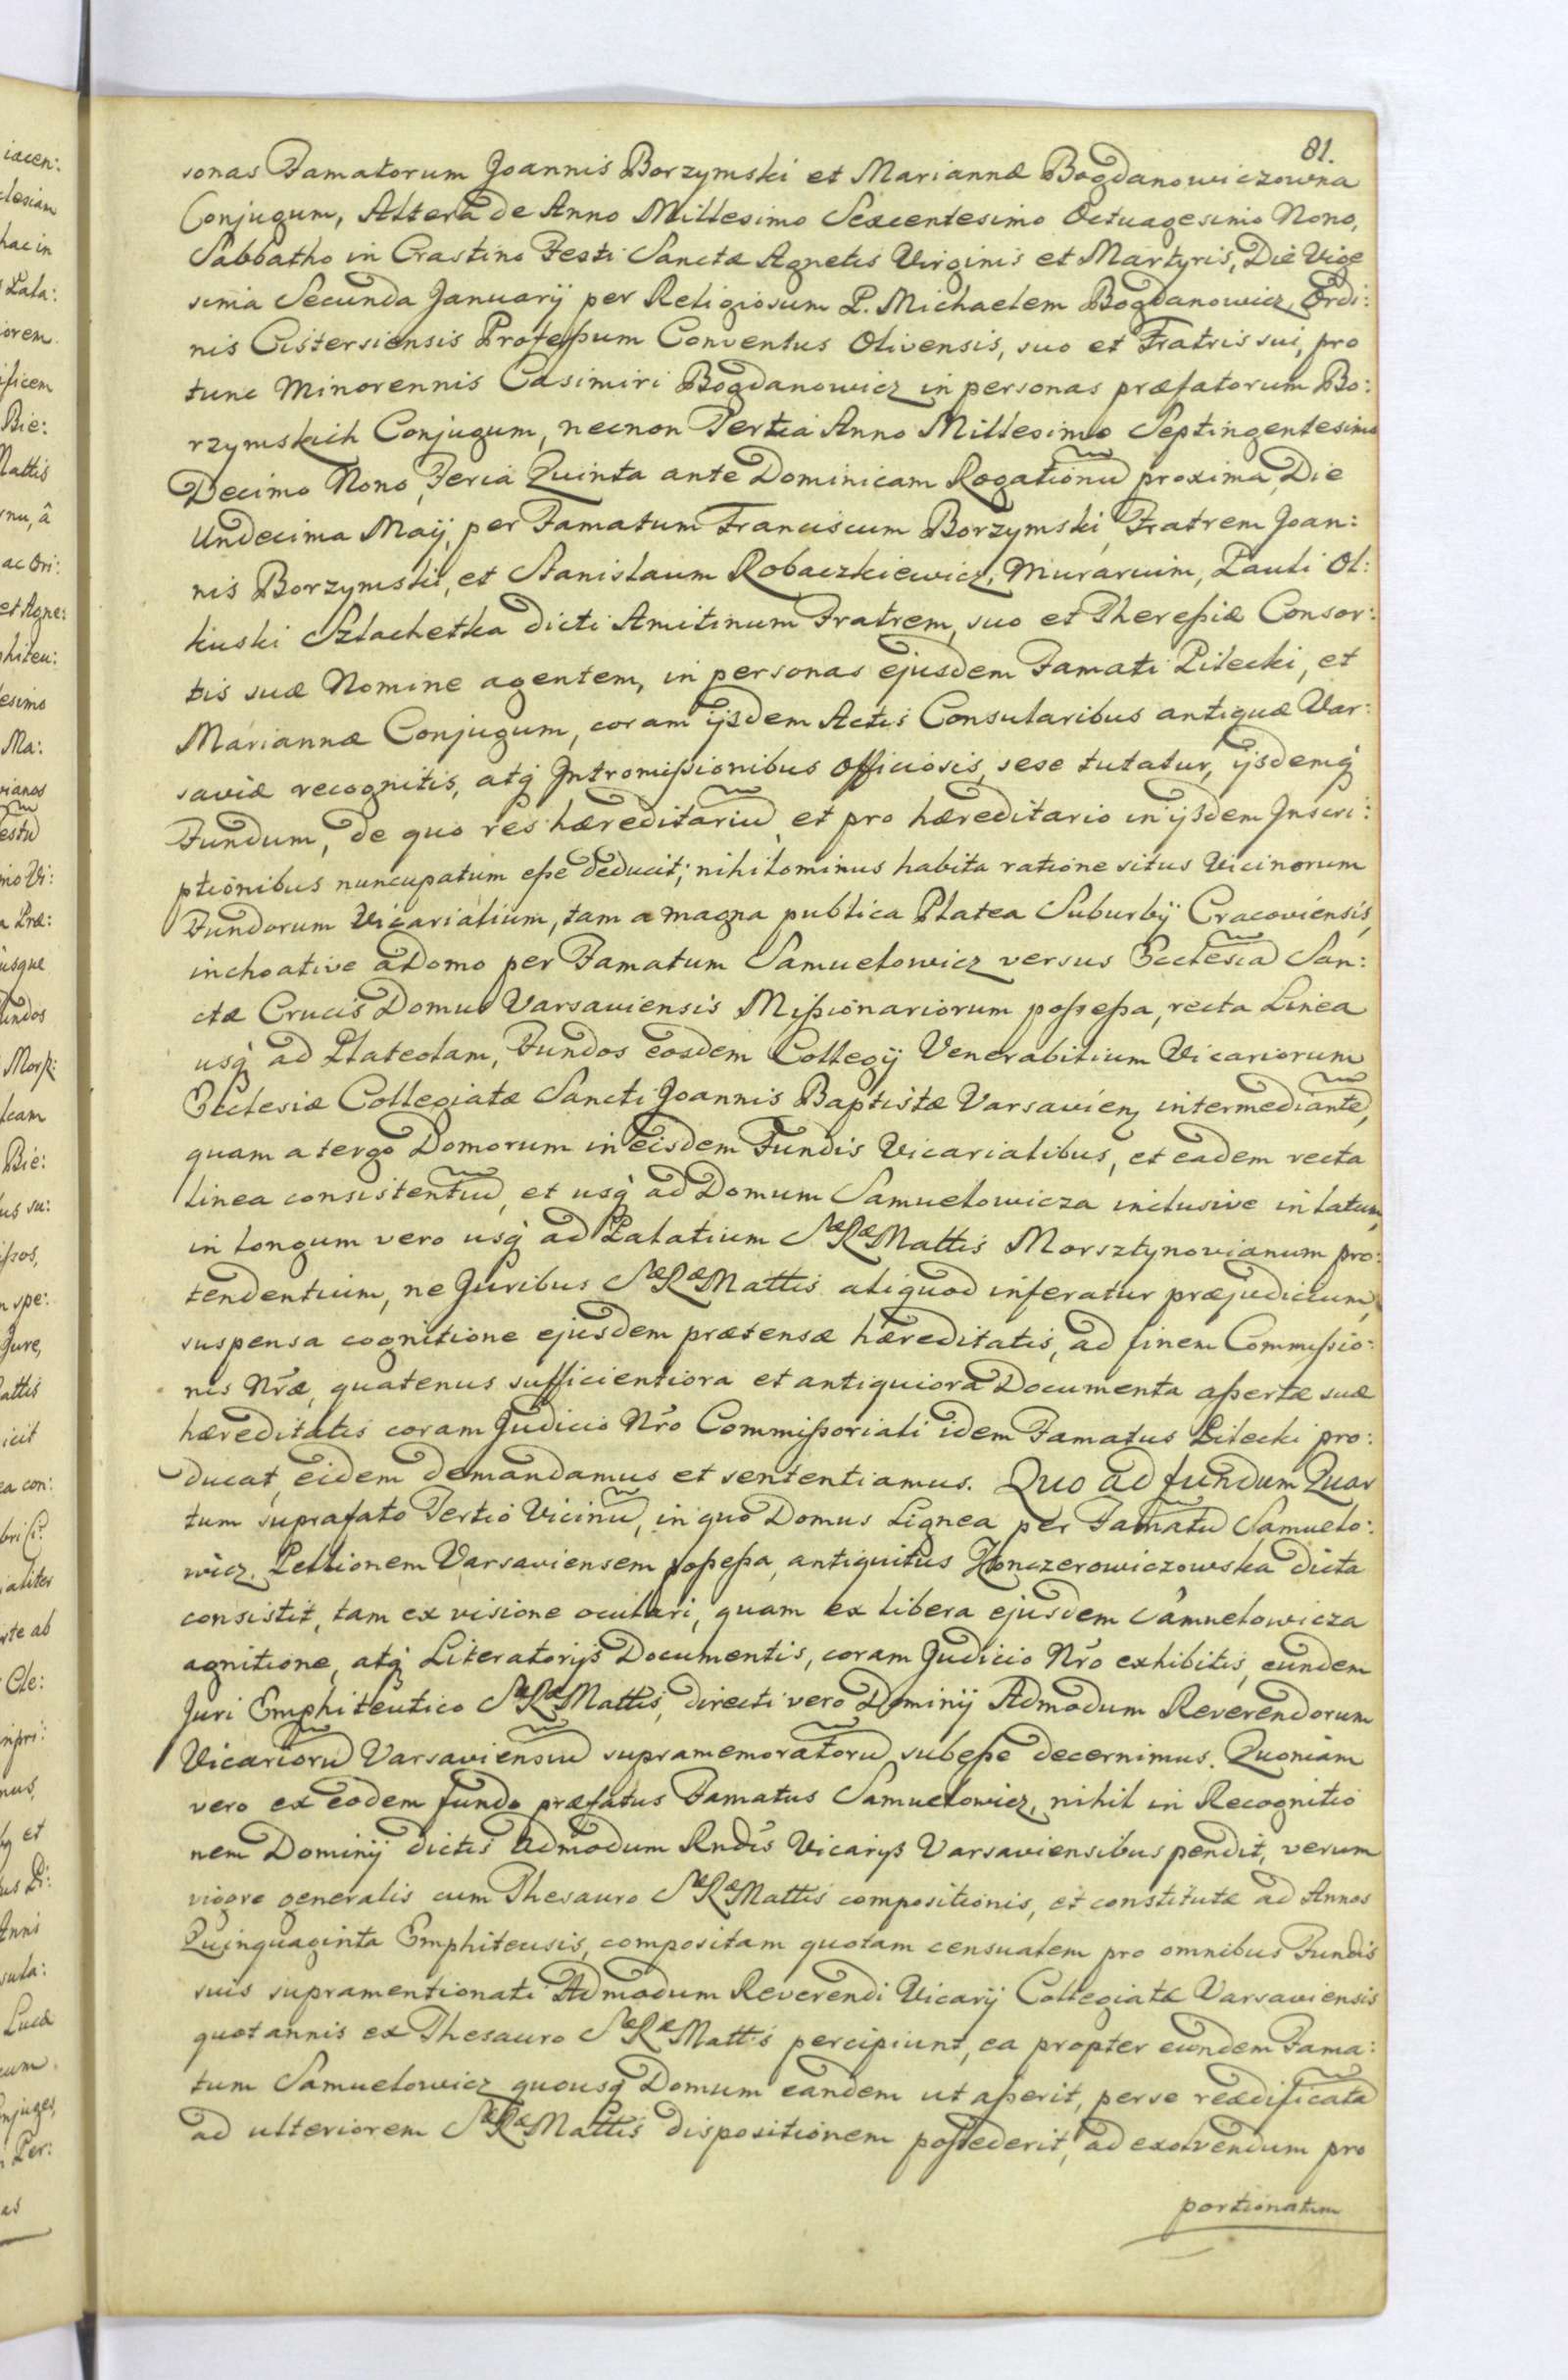 81.
sonas Famatorum Joannis Borzymski et Mariannæ Bogdanowiczowna
Conjugum, Altera de Anno Millesimo Sexcentesimo Octuagesimo Nono,
Sabbatho in Crastino Festi Sanctæ Agnetis Virginis et Martyris, Die Vige
sima Secunda Januarij per Religiosum P. Michaelem Bogdanowicz, Ordi:
nis Cistersiensis Profeßum Conventus Olivensis, suo et Fratris sui, pro
tunc Minorennis Casimiri Bogdanowicz in personas præfatorum Bo:
rzymskich Conjugum, necnon Tertia Anno Millesimo Septingentesimo
Decimo Nono, Feria Quinta ante Dominicam Rogationũ proxima, Die
Undecima Maij, per Famatum Franciscum Borzymski, Fratrem Joan:
nis Borzymski, et Stanislaum Robaczkiewicz, Murarium, Pauli Ol:
kuski Szlachetka dicti Amitinum Fratrem, suo et Thereßiæ Consor:
tis suæ Nomine agentem, in personas ejusdem Famati Pilecki, et
Mariannæ Conjugum, coram ijsdem Actis Consularibus antiquæ Var:
saviæ recognitis, atq́ Intromißionibus Officiosis, sese tutatur, ijsdemq́
Fundum, de quo res hæreditariũ, et pro hæreditario in ijsdem Inscri:
ptionibus nuncupatum eße deducit; nihilominus habita ratione situs Vicinorum
Fundorum Vicarialium, tam a magna publica Platea Suburbij Cracoviensis,
inchoative à Domo per Famatum Samuelowicz versus Ecclesiã San:
ctæ Crucis Domus Varsaviensis Mißionariorum poßeßa, recta Linea
usq́ ad Plateolam, Fundos eosdem Collegij Venerabilium Vicariorum
Ecclesiæ Collegiatæ Sancti Joannis Baptistæ Varsavien̄ intermediantẽ,
quam a tergo Domorum in eisdem Fundis Vicarialibus, et eadem recta
linea consistentiũ, et usq́ ad Domum Samuelowicza inclusive in latum,
in longum vero usq́ ad Palatium SæRæMattis Morsztynovianum pro:
tendentium, ne Juribus SæRæMattis aliquod inferatur præjudicium,
suspensa cognitione ejusdem prætensæ hæreditatis, ad finem Commißio:
nis Nr̃æ, quatenus sufficientiora et antiquiora Documenta aßertæ suæ
hæreditatis coram Judicio Nr̃o Commißoriali idem Famatus Pilecki pro:
ducat, eidem demandamus et sententiamus. Quo ad fundum Quar
tum suprafato Tertio Vicinũ, in quo Domus Lignea per Famatũ Samuelo:
wicz. Pellionem Varsaviensem poßeßa, antiquitus Honczerowiczowska dicta
consistit, tam ex visione oculari, quam ex libera ejusdem Samuelowicza
agnitione, atq́ Literatorijs Documentis, coram Judicio Nr̃o exhibitis, eundem
Juri Emphiteutico SæRæMattis, directi vero Dominij Admodum Reverendorum
Vicariorũ Varsaviensiũ supramemoratorũ subeße decernimus. Quoniam
vero ex eodem fundo præfatus Famatus Samuelowicz, nihil in Recognitio
nem Dominij dictis Admodum Rndis Vicarijs Varsaviensibus pendit, verum
vigore generalis cum Thesauro SæRæMattis compositionis, et constitutæ ad Annos
Quinquaginta Emphiteusis, compositam quotam censualem pro omnibus Fundis
suis supramentionati Admodum Reverendi Vicarij Collegiatæ Varsaviensis
quotannis ex Thesauro SæRæMattis percipiunt, ea propter eundem Fama:
tum Samuelowicz quousq́ Domum eandem ut aßerit, per se reædificatã
ad ulteriorem SæRæMattis dispositionem poßederit, ad exolvendum pro
portionatum